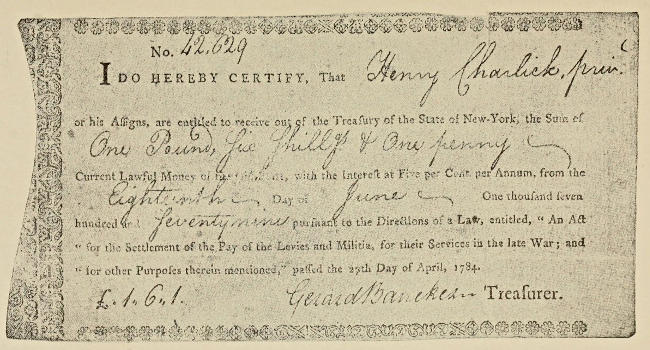 No. 42,629
I DO HEREBY CERTIFY, That Henry Charlick, priv.t
or his Assigns, are entitled to receive out of the Treasury of the State of New-York, the Sum of
One Pound, Six Shillgs & One penny
Current Lawful Money of the said State, with the Interest at Five per Cent. per Annum, from the
Eighteenth Day of June One thousand seven
hundred and Seventynine pursuant to the Directions of a Law, entitled, “ An Act
“ for the Settlement of the Pay of the Levies and Militia, for their Services in the late War; and
“ for other Purposes therein mentioned,” passed the 27th Day of April, 1784.
£. 1. 6. 1. Gerard Bancker Treasurer.